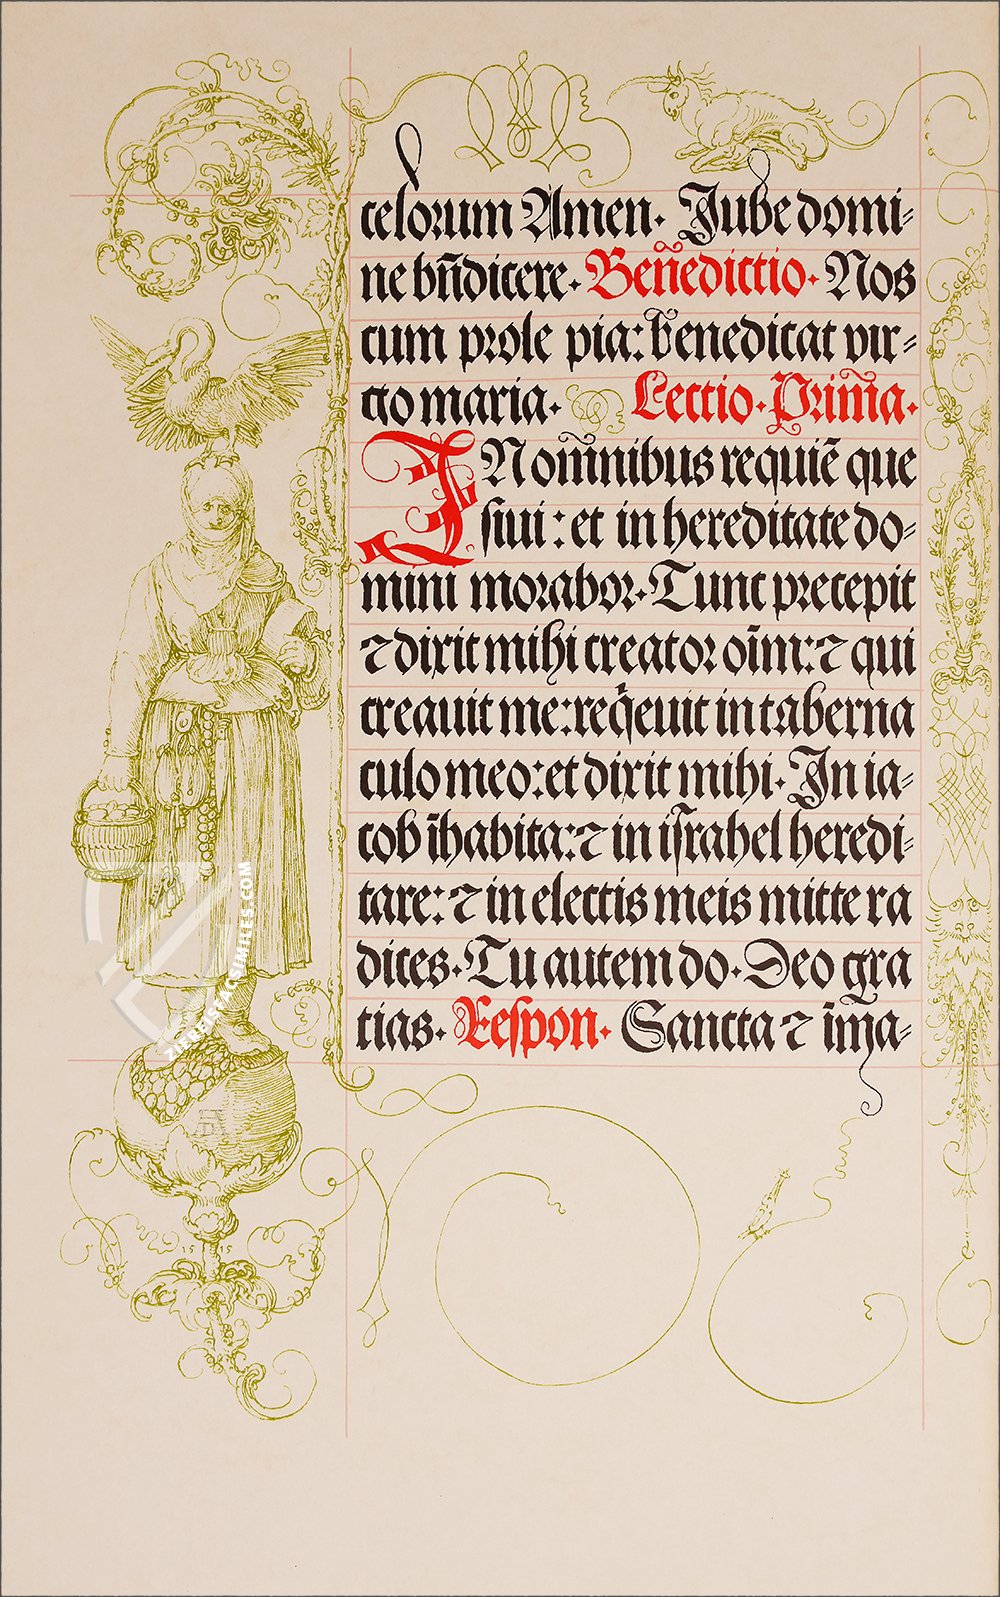 celorum Amen. Jube domi-
ne bn̄dicere. Ben̄edictio. Nos
cum prole pia: benedicat vir-
go maria. Lectio. Prim̄a.
IN om̄nibus requiē que
siui: et in hereditate do-
mini morabor. Tunc precepit
⁊ dixit mihi creator oīm: ⁊ qui
creauit me: reꝗeuit in taberna
culo meo: et dixit mihi. In ia-
cob īhabita: ⁊ in israhel heredi-
tare: ⁊ in electis meis mitte ra
dices. Tu autem do. Deo gra
tias. Respon. Sancta ⁊ īma-
1515
ZIEREIS FACSIMILES.COM